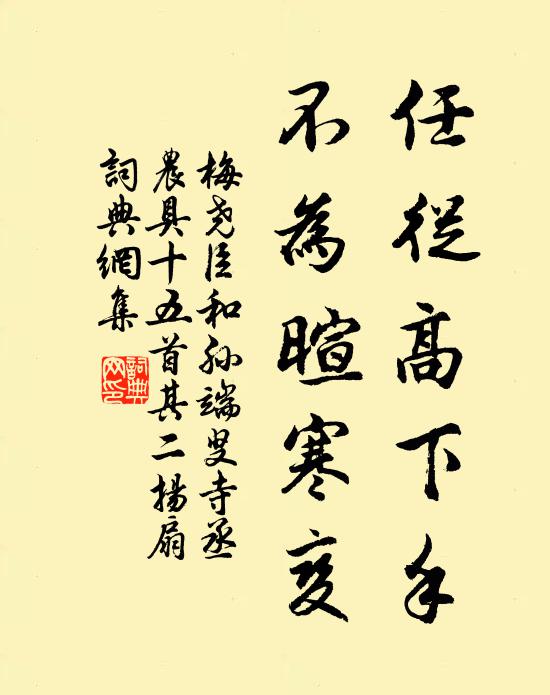 任從高下手
不為暄寒變
梅堯臣和孙端叟寺丞
農具十五首其二揚扇
詞典網集
詞典
网印